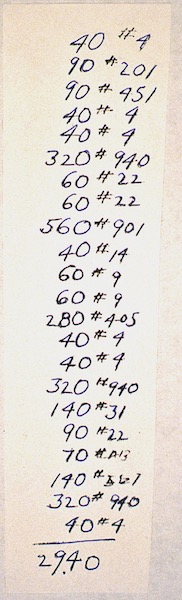 40 #4
90 #201
90 #451
40 # 4
40 # 4
320 #940
60 #22
60 #22
560 #901
40 #14
60 # 9
60 # 9
280 #405
40 #4
40 #4
320 #940
140 #31
90 #22
70 #
140 #
320 #940
40 #4
29.40